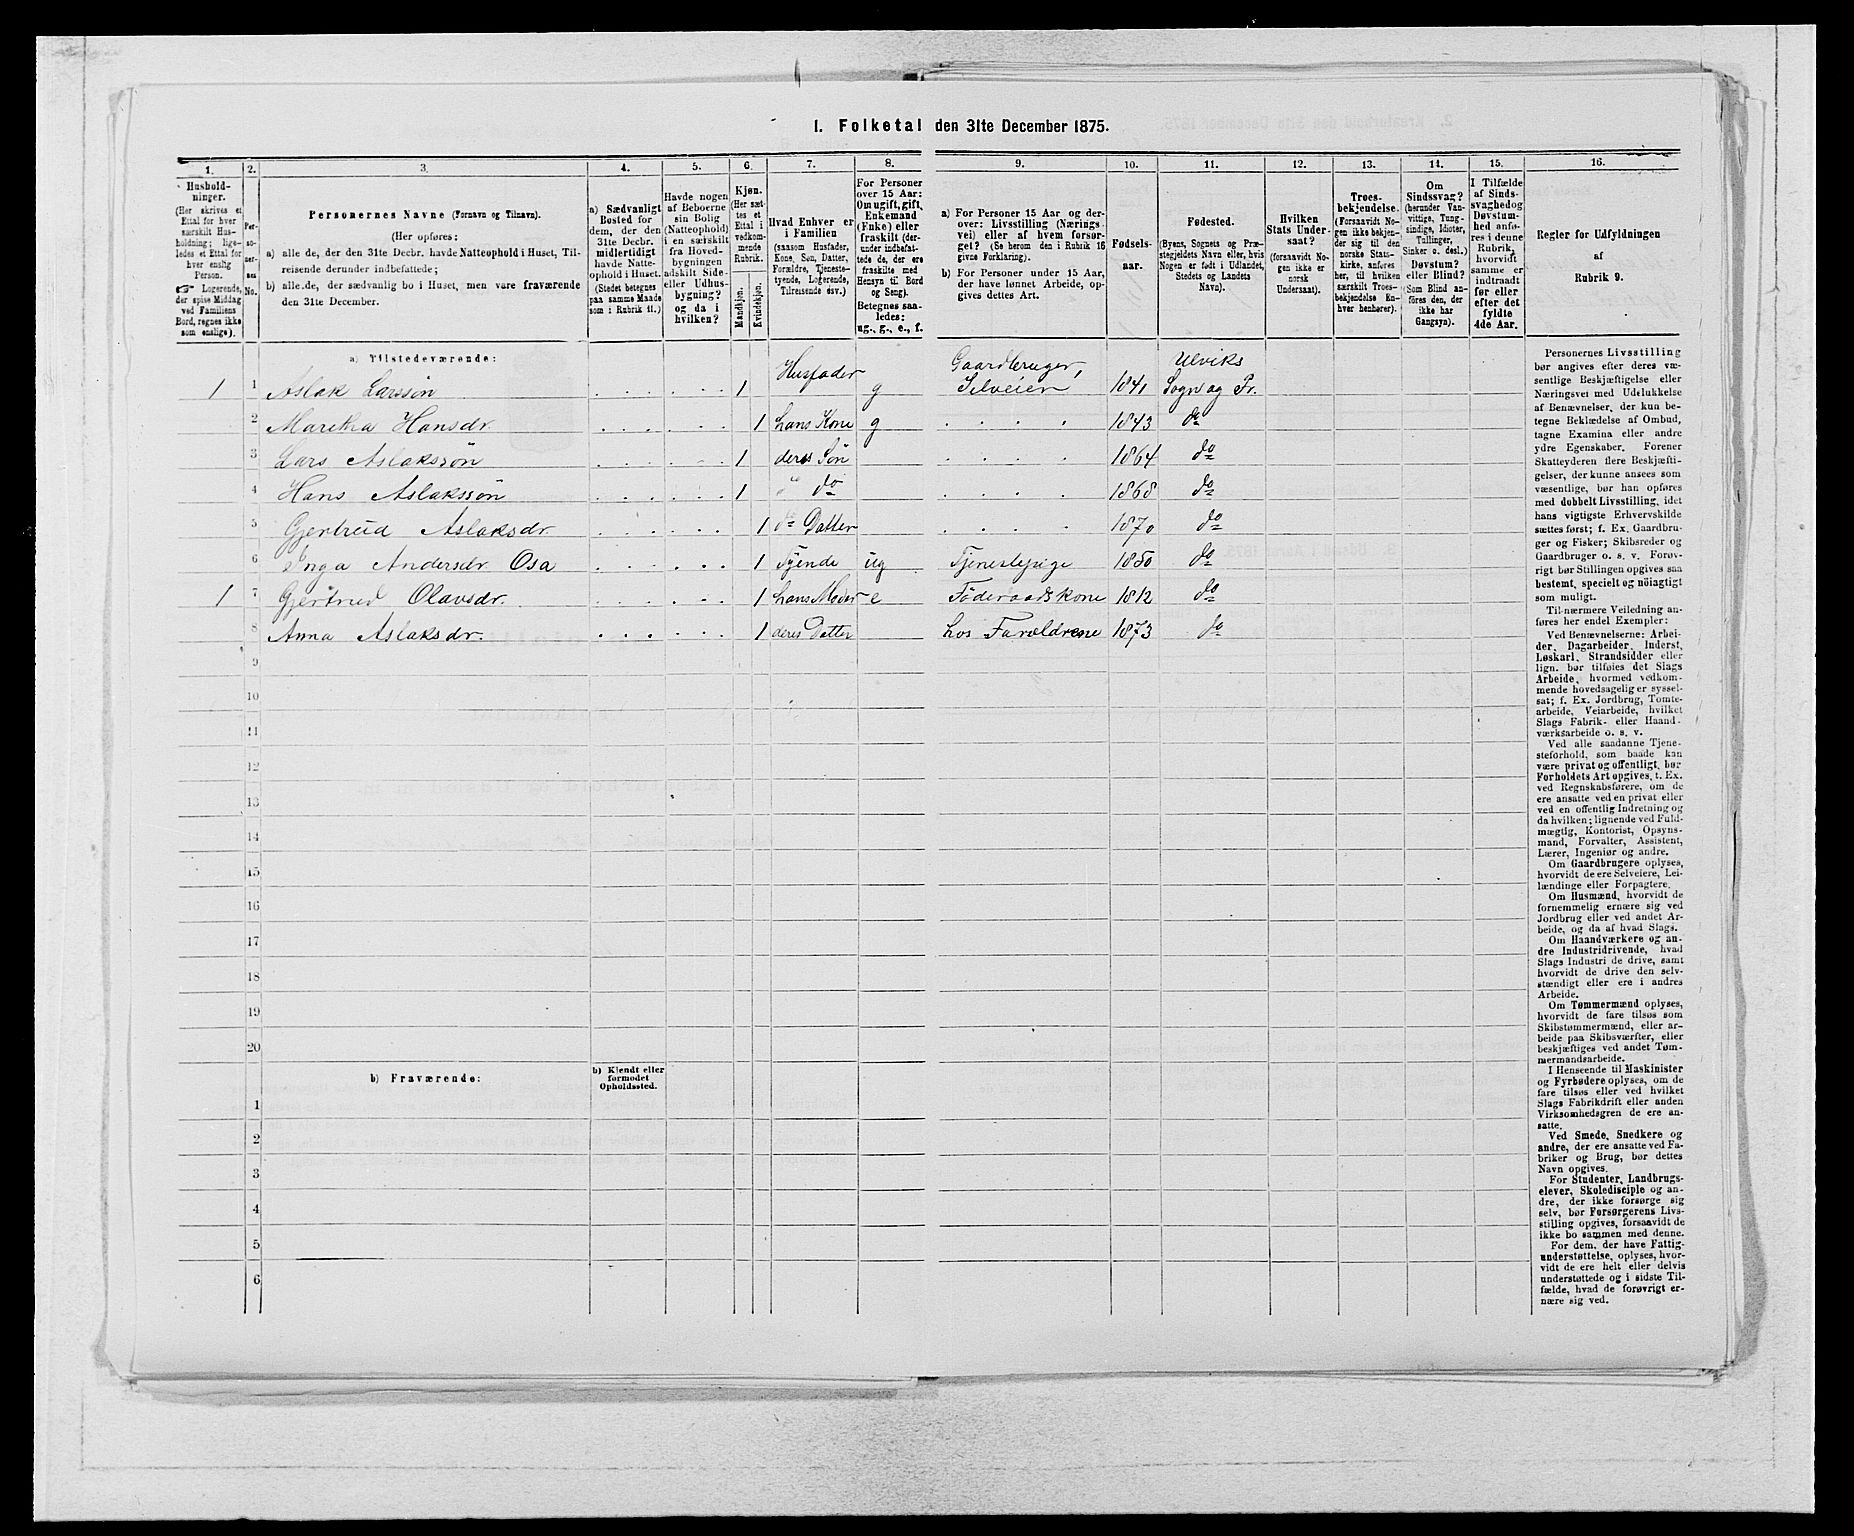 1. Folketal den 31te December 1875.
1. 2. 3. 4. 5. 6. 7. 8. 9. 10. 11. 12. 13. 14. 15. 16.
Hushold-
ninger.
(Her skrives et
Ettal for hver
særskilt Hus-
holdning; lige-
ledes et Ettal for
hver enslig
Person.
☛ Logerende,
der spise Middag
ved Familiens
Bord, regnes ikke
som enslige).
Per-
so-
ner-
nes
No.
Personernes Navne (Fornavn og Tilnavn).
(Her opføres:
a) alle de, der den 31te Decbr. havde Natteophold i Huset, Til-
reisende derunder indbefattede;
b) alle de, der sædvanlig bo i Huset, men vare fraværende
den 31te December.
a) Sædvanligt
Bosted for
dem, der den
31te Decbr.
midlertidigt
havde Natte-
ophold i Huset.
(Stedet betegnes
paa samme Maade
som i Rubrik 11.)
Havde nogen
af Beboerne
sin Bolig
(Natteophold)
i en særskilt
fra Hoved-
bygningen
adskilt Side-
eller Udhus-
bygning?
og da i
hvilken?
Kjøn.
(Her sæt-
tes et
Ettal i
vedkom-
mende
Rubrik.
Mandkjøn.
Kvindekjøn.
Hvad Enhver er
i Familien
(saasom Husfader,
Kone, Søn, Datter,
Forældre, Tjeneste-
tyende, Logerende,
Tilreisende osv.)
For Personer
over 15 Aar:
Om ugift, gift,
Enkemand
(Enke) eller
fraskilt (der-
under indbefat-
tede de, der ere
fraskilte med
Hensyn til Bord
og Seng).
Betegnes saa-
ledes:
ug., g., e., f.
a) For Personer 15 Aar og der-
over: Livsstilling (Nærings-
vei) eller af hvem forsør-
get? (Se herom den i Rubrik 16
givne Forklaring).
b) For Personer under 15 Aar,
der have lønnet Arbeide, op-
gives dettes Art.
Fødsels-
aar.
Fødested.
(Byens, Sognets og Præ-
stegjeldets Navn eller, hvis
Nogen er født i Udlandet,
Stedets og Landets
Navn).
Hvilken
Stats Under-
saat?
(forsaavidt No-
gen ikke er
norsk
Undersaat).
Troes-
bekjendelse.
(Forsaavidt No-
gen ikke bekjen-
der sig til den
norske Stats-
kirke, anføres
her, til hvilken
særskilt Troes-
bekjendelse En-
hver henhører).
Om
Sindssvag?
(herunder Van-
vittige, Tung-
sindige, Idioter,
Tullinger,
Sinker o. desl.)
Døvstum?
eller Blind?
(Som Blind an-
føres den, der
ikke har
Gangsyn).
I Tilfælde
af Sinds-
svaghed og
Døvstum-
hed anfø-
res i denne
Rubrik,
hvorvidt
samme er
indtraadt
før eller
efter det
fyldte
4de Aar.
Regler for Udfyldningen
af
Rubrik 9.
a) Tilstedeværende:
1 1 Aslak Larssøn 1 Husfader g Gaardbruger, Selveier 1841 Ulviks Sogn og Pr.
2 Maritha Hansdr. 1 hans Kone g 1843 do
3 Lars Aslakssøn 1 deres Søn 1864 do
4 Hans Aslakssøn 1 do do 1868 do
5 Gjertrud Aslaksdr. 1 do Datter 1870 do
6 Inga Andersdr. Osa 1 Tyende ug Tjenestepige 1850 do
1 7 Gjertrud Olavsdr. 1 hans Moder e Føderaadskone 1812 do
8 Anna Aslaksdr. 1 deres Datter hos Forældrene 1873 do
9
10
11
12
13
14
15
16
17
18
19
20
b) Fraværende:
b) Kjendt eller
formodet
Opholdssted.
1
2
3
4
5
6
Personernes Livsstilling
bør angives efter deres væ-
sentlige Beskjæftigelse eller
Næringsvei med Udelukkelse
af Benævnelser, der kun be-
tegne Beklædelse af Ombud,
tagne Examina eller andre
ydre Egenskaber. Forener
Skatteyderen flere Beskjæfti-
gelser, der kunne ansees som
væsentlige, bør han opføres
med dobbelt Livsstilling, idet
hans vigtigste Erhvervskilde
sættes først; f. Ex. Gaardbru-
ger og Fisker; Skibsreder og
Gaardbruger o. s. v. Forøv-
rigt bør Stillingen opgives saa
bestemt, specielt og nøiagtigt
som muligt.
Til nærmere Veiledning an-
føres her endel Exempler:
Ved Benævnelserne: Arbei-
der, Dagarbeider, Inderst,
Løskarl, Strandsidder eller
lign. bør tilføies det Slags
Arbeide, hvormed vedkom-
mende hovedsagelig er syssel-
sat; f. Ex. Jordbrug, Tomte-
arbeide, Veiarbeide, hvilket
Slags Fabrik- eller Haand-
værksarbeide o. s. v.
Ved alle saadanne Tjene-
steforhold, som baade kan
være privat og offentligt, bør
Forholdets Art opgives, t. Ex.
ved Regnskabsførere, om de
ere ansatte ved en privat eller
ved en offentlig Indretning og
da hvilken; lignende ved Fuld-
mægtig, Kontorist, Opsyns-
mand, Forvalter, Assistent,
Lærer, Ingeniør og andre.
Om Gaardbrugere oplyses,
hvorvidt de ere Selveiere, Lei-
lændinge eller Forpagtere.
Om Husmænd, hvorvidt de
fornemmelig ernære sig ved
Jordbrug eller ved andet Ar-
beide, og da af hvad Slags.
Om Haandværkere og an-
dre Industridrivende, hvad
Slags Industri de drive, samt
hvorvidt de drive den selv-
stændigt eller ere i andres
Arbeide.
Om Tømmermænd oplyses,
hvorvidt de fare tilsøs som
Skibstømmermænd, eller ar-
beide paa Skibsværfter, eller
beskjæftiges ved andet Tøm-
mermandsarbeide.
I Henseende til Maskinister
og Fyrbødere oplyses, om de
fare tilsøs eller ved hvilket
Slags Fabrikdrift eller anden
Virksomhedsgren de ere an-
satte.
Ved Smede, Snedkere og
andre, der ere ansatte ved Fa-
briker og Brug, bør dettes
Navn opgives.
For Studenter, Landbrugs-
elever, Skoledisciple og an-
dre, der ikke forsørge sig
selv, bør Forsørgerens Livs-
stilling opgives, forsaavidt de
ikke bo sammen med denne.
For dem, der have Fattig-
understøttelse, oplyses, hvor-
vidt de ere helt eller delvis
understøttede og i sidste Til-
fælde, hvad de forøvrigt er-
nære sig ved.